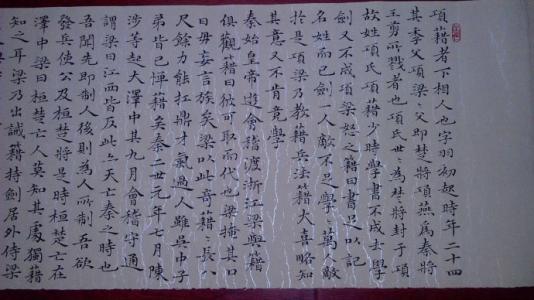 項籍者下相人也字羽初起時年二十四
其季父項梁〻父即楚將項燕為秦將
王剪所戮者也項氏世〻為楚將封于項
故姓項氏項籍少時學書不成去學
劍又不成項梁怒之籍曰書足以記
名姓而已劍一人敵不足學〻萬人敵
於是項梁乃教籍兵法籍大喜略知
其意又不肯竟學
秦始皇帝遊會稽渡浙江梁與籍
俱觀籍曰彼可取而代也梁掩其口
曰毋妄言族矣梁以此奇籍〻長八
尺餘力能扛鼎才氣過人雖吳中子
弟皆已憚籍矣秦二世元年七月陳
涉等起大澤中其九月會稽守通
謂梁曰江西皆反此亦天亡秦之時也
吾聞先即制人後則為人所制吾欲
發兵使公及桓楚將是時桓楚亡在
澤中梁曰桓楚亡人莫知其處獨籍
知之耳梁乃出誡籍持劍居外侍梁